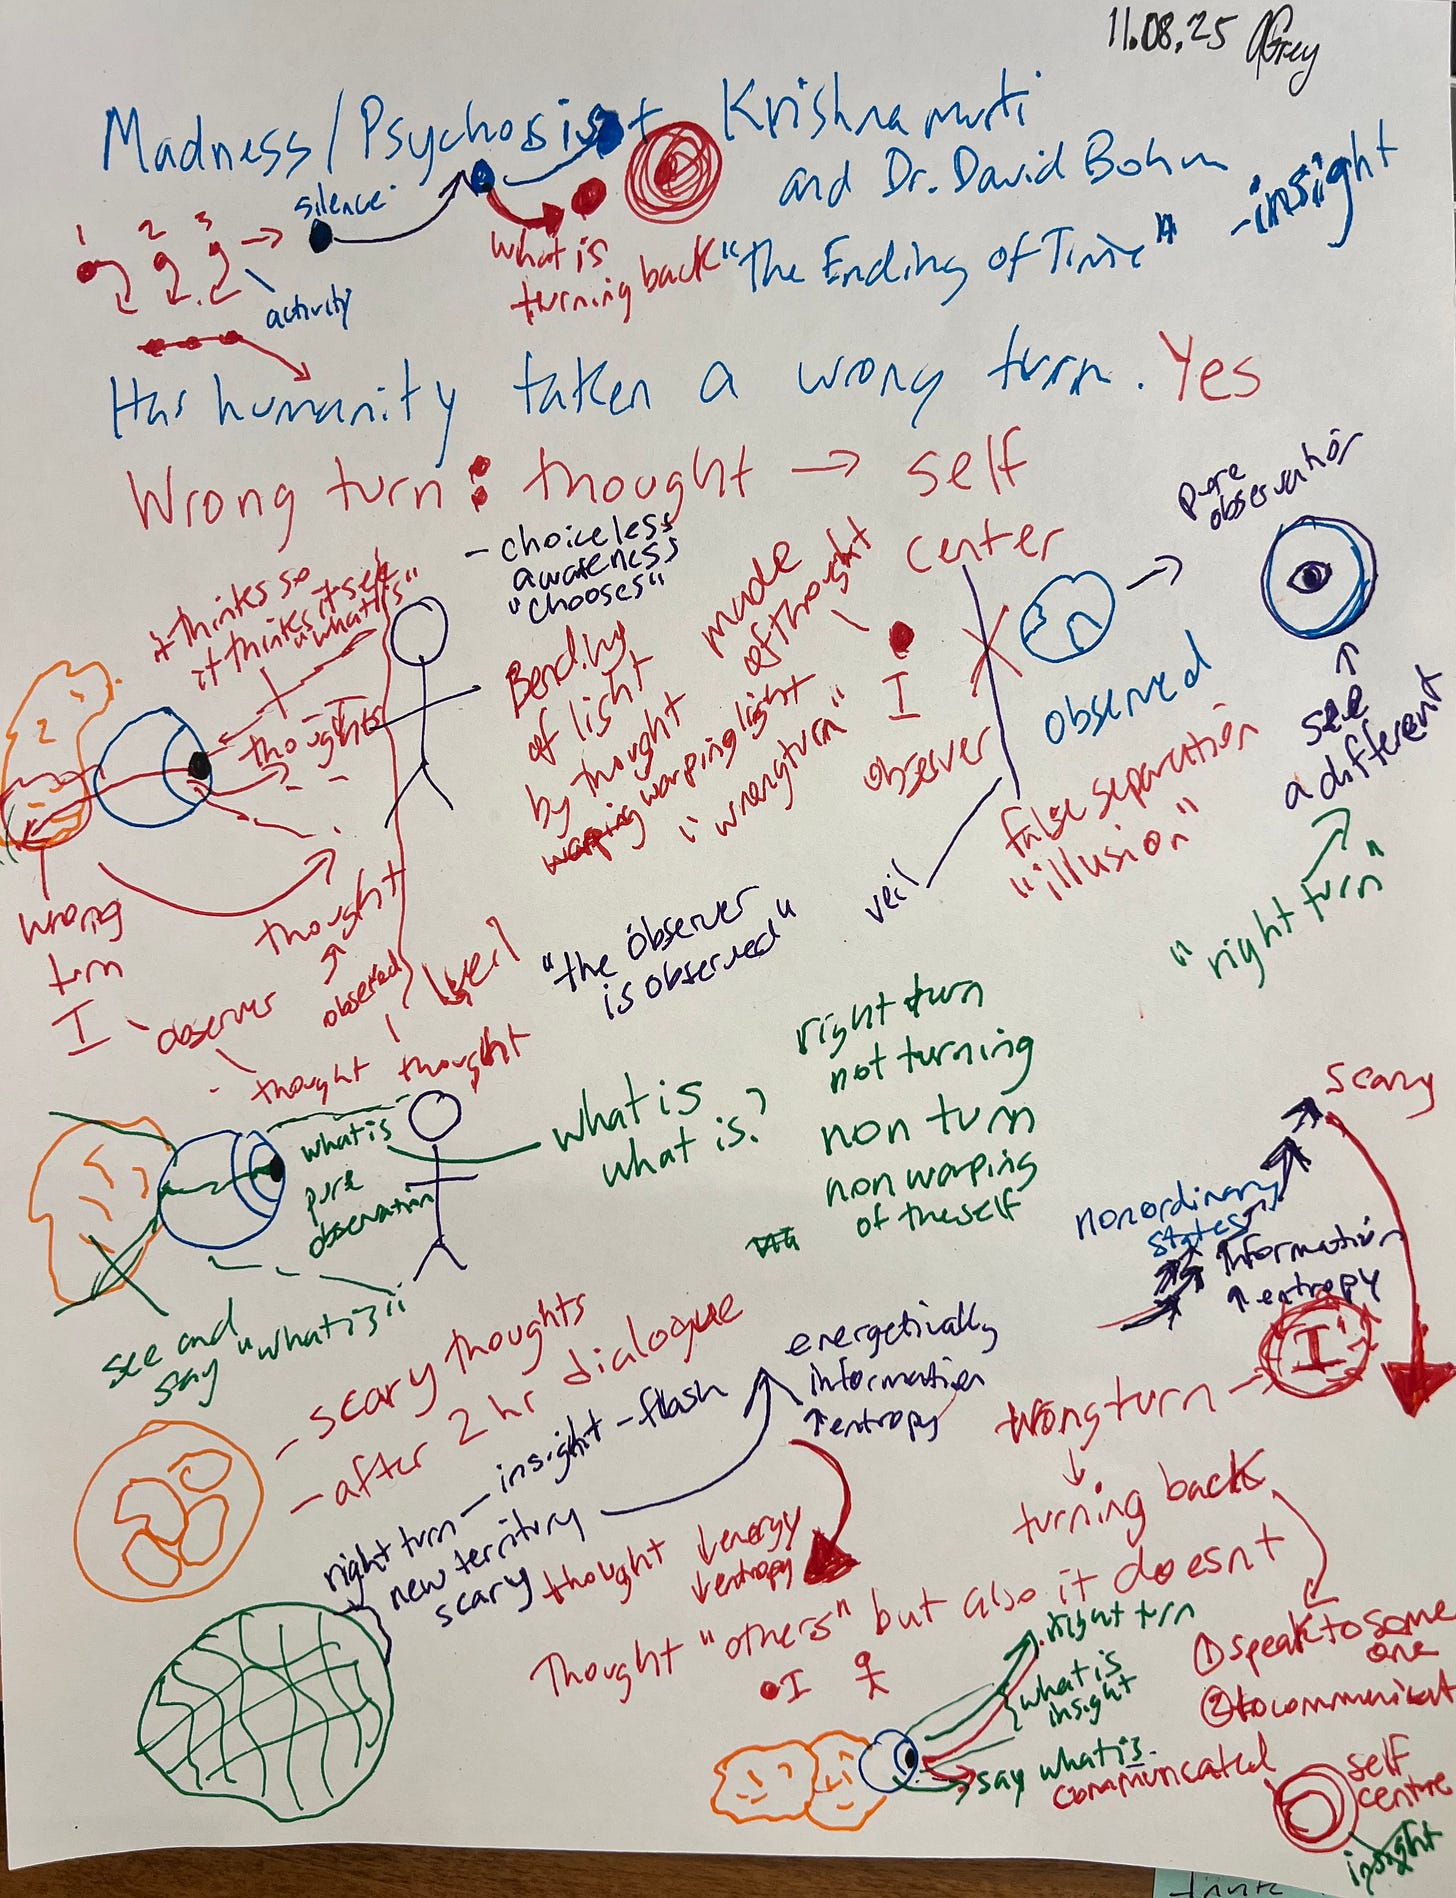 11.08.25 Grey
Madness/Psychosis + Krishnamurti
and Dr. David Bohm
"the Ending of Time" - insight
1 2 3
silence
activity
what is
turning back
Has humanity taken a wrong turn. Yes
Wrong turn: thought → self
center
- choiceless
awareness
"chooses"
it thinks so
it thinks itself
"what is"
thoughts
Bending
of light
by thought
warping light
made
of thought
"wrong turn"
I
observer
observed
pure
observation
see
a different
"right turn"
false separation
"illusion"
veil
"the observer
is observed"
wrong
turn
I
observer
thought
observed
veil
thought
thought
what is
pure
observation
what is
what is?
right turn
not turning
non turn
non warping
of the self
see and
say "what is"
scary
nonordinary
states
information
↑ entropy
I
wrong turn
turning back
① speak to some
one
② to communicat
- scary thoughts
- after 2 hr dialogue
right turn - insight - flash
new territory
scary
energetically
information
↑ entropy
thought ↓ energy
↓ entropy
Thought "others" but also it doesnt
I
right turn
what is
insight
say what is
communicated
self
centre
insight